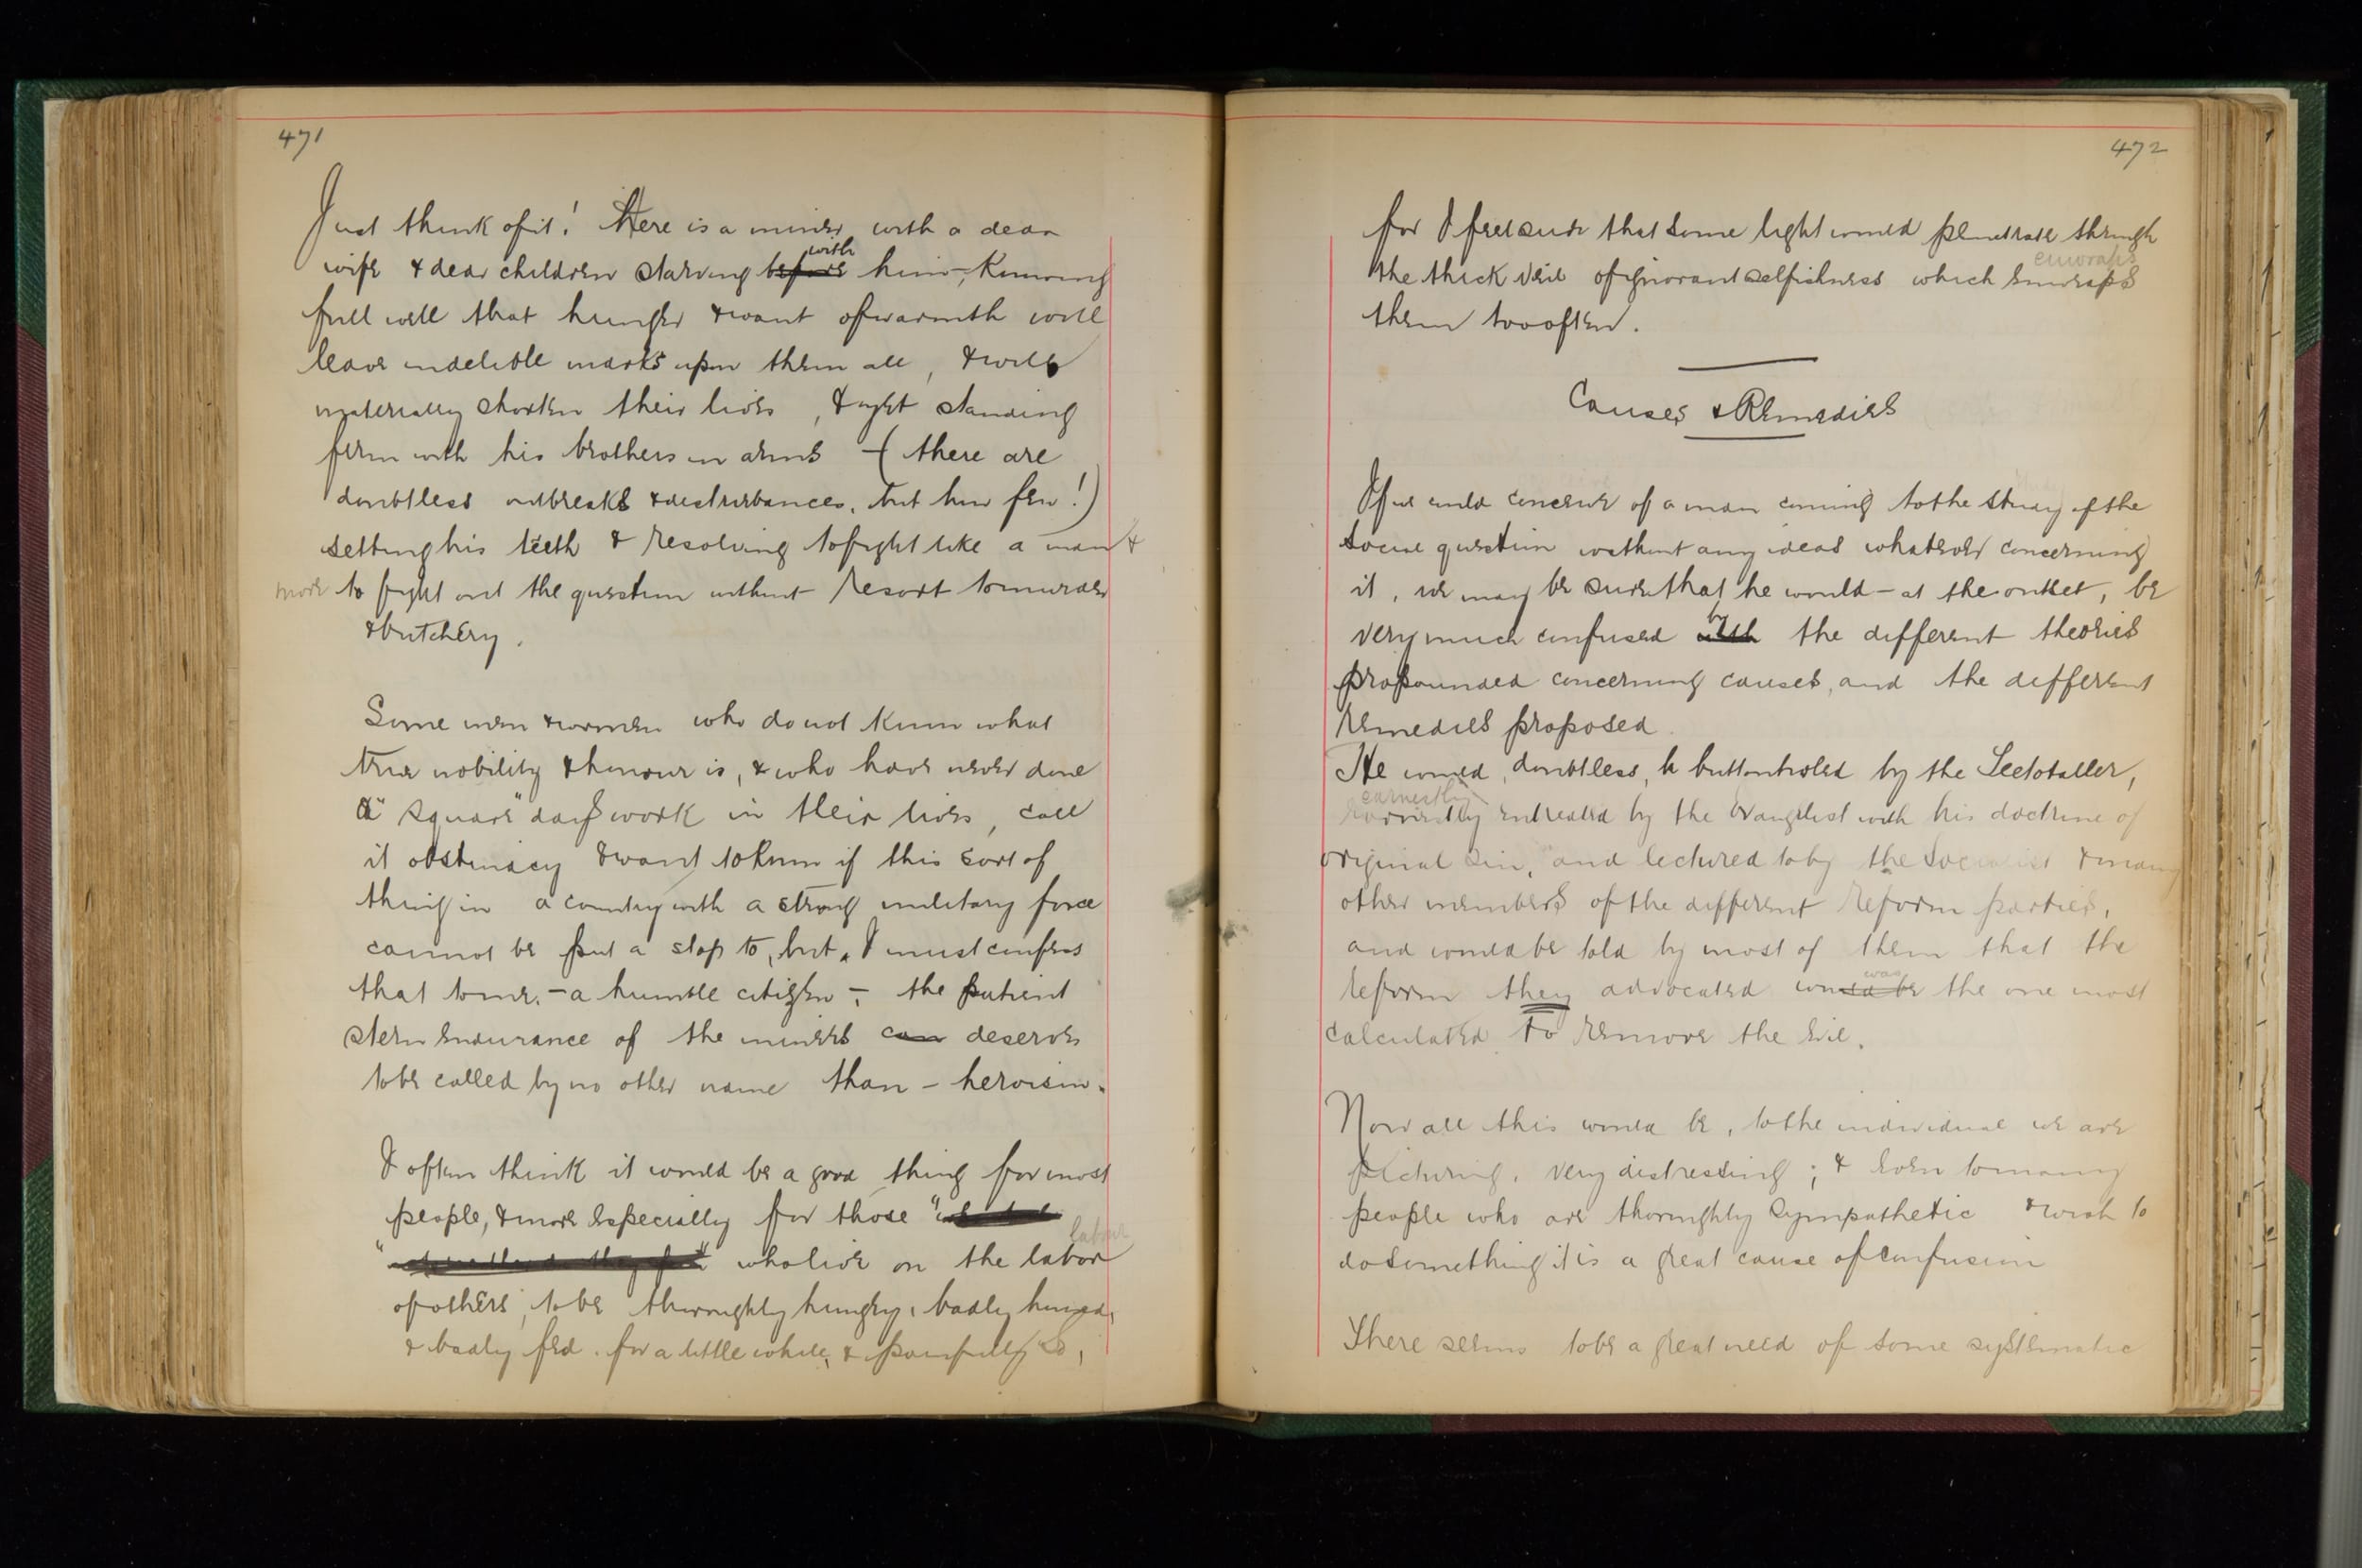 471
Just think of it! Here is a miner with a dear
wife & dear children starving before with him, – knowing
full well that hunger & want of warmth will
leave indelible marks upon them all, & will
materially shorten their lives, & yet standing
firm with his brothers in arms – (there are
doubtless outbreaks & disturbances, but how few!)
setting his teeth & resolving to fight like a man &
more to fight out the question without resort to murder
& butchery.
Some men & women who do not know what
true nobility & honour is, & who have never done
a "square" day's work in their lives, call
it obstinacy & want to know if this sort of
thing in a country with a strong military force
cannot be put a stop to, but, I must confess
that to me, – a humble citizen –, the patient
stern endurance of the miners can deserves
to be called by no other name than – heroism.
I often think it would be a good thing for most
people, & more especially for those "
labour
" " who live on the labor
of others, to be thoroughly hungry, badly housed,
& badly fed, for a little while, & painfully so,
472
for I feel sure that some light would penetrate through
enwraps
the thick veil of ignorant selfishness which enwraps
them too often.
Causes & Remedies
If we could conceive of a man coming to the study of the
social question without any ideas whatever concerning
it, we may be sure that he would – at the outset, be
very much confused with by the different theories
propounded concerning causes, and the different
remedies proposed.
He would, doubtless, be buttonholed by the Teetotaller,
earnestly
entreated by the Evangelist with his doctrine of
original sin, and lectured to by the Socialist & many
other members of the different reform parties,
and would be told by most of them that the
reform they advocated would be was the one most
calculated to remove the evil.
Now all this would be, to the individual we are
picturing, very distressing; & even to many
people who are thoroughly sympathetic & wish to
do something it is a great cause of confusion
There seems to be a great need of some systematic